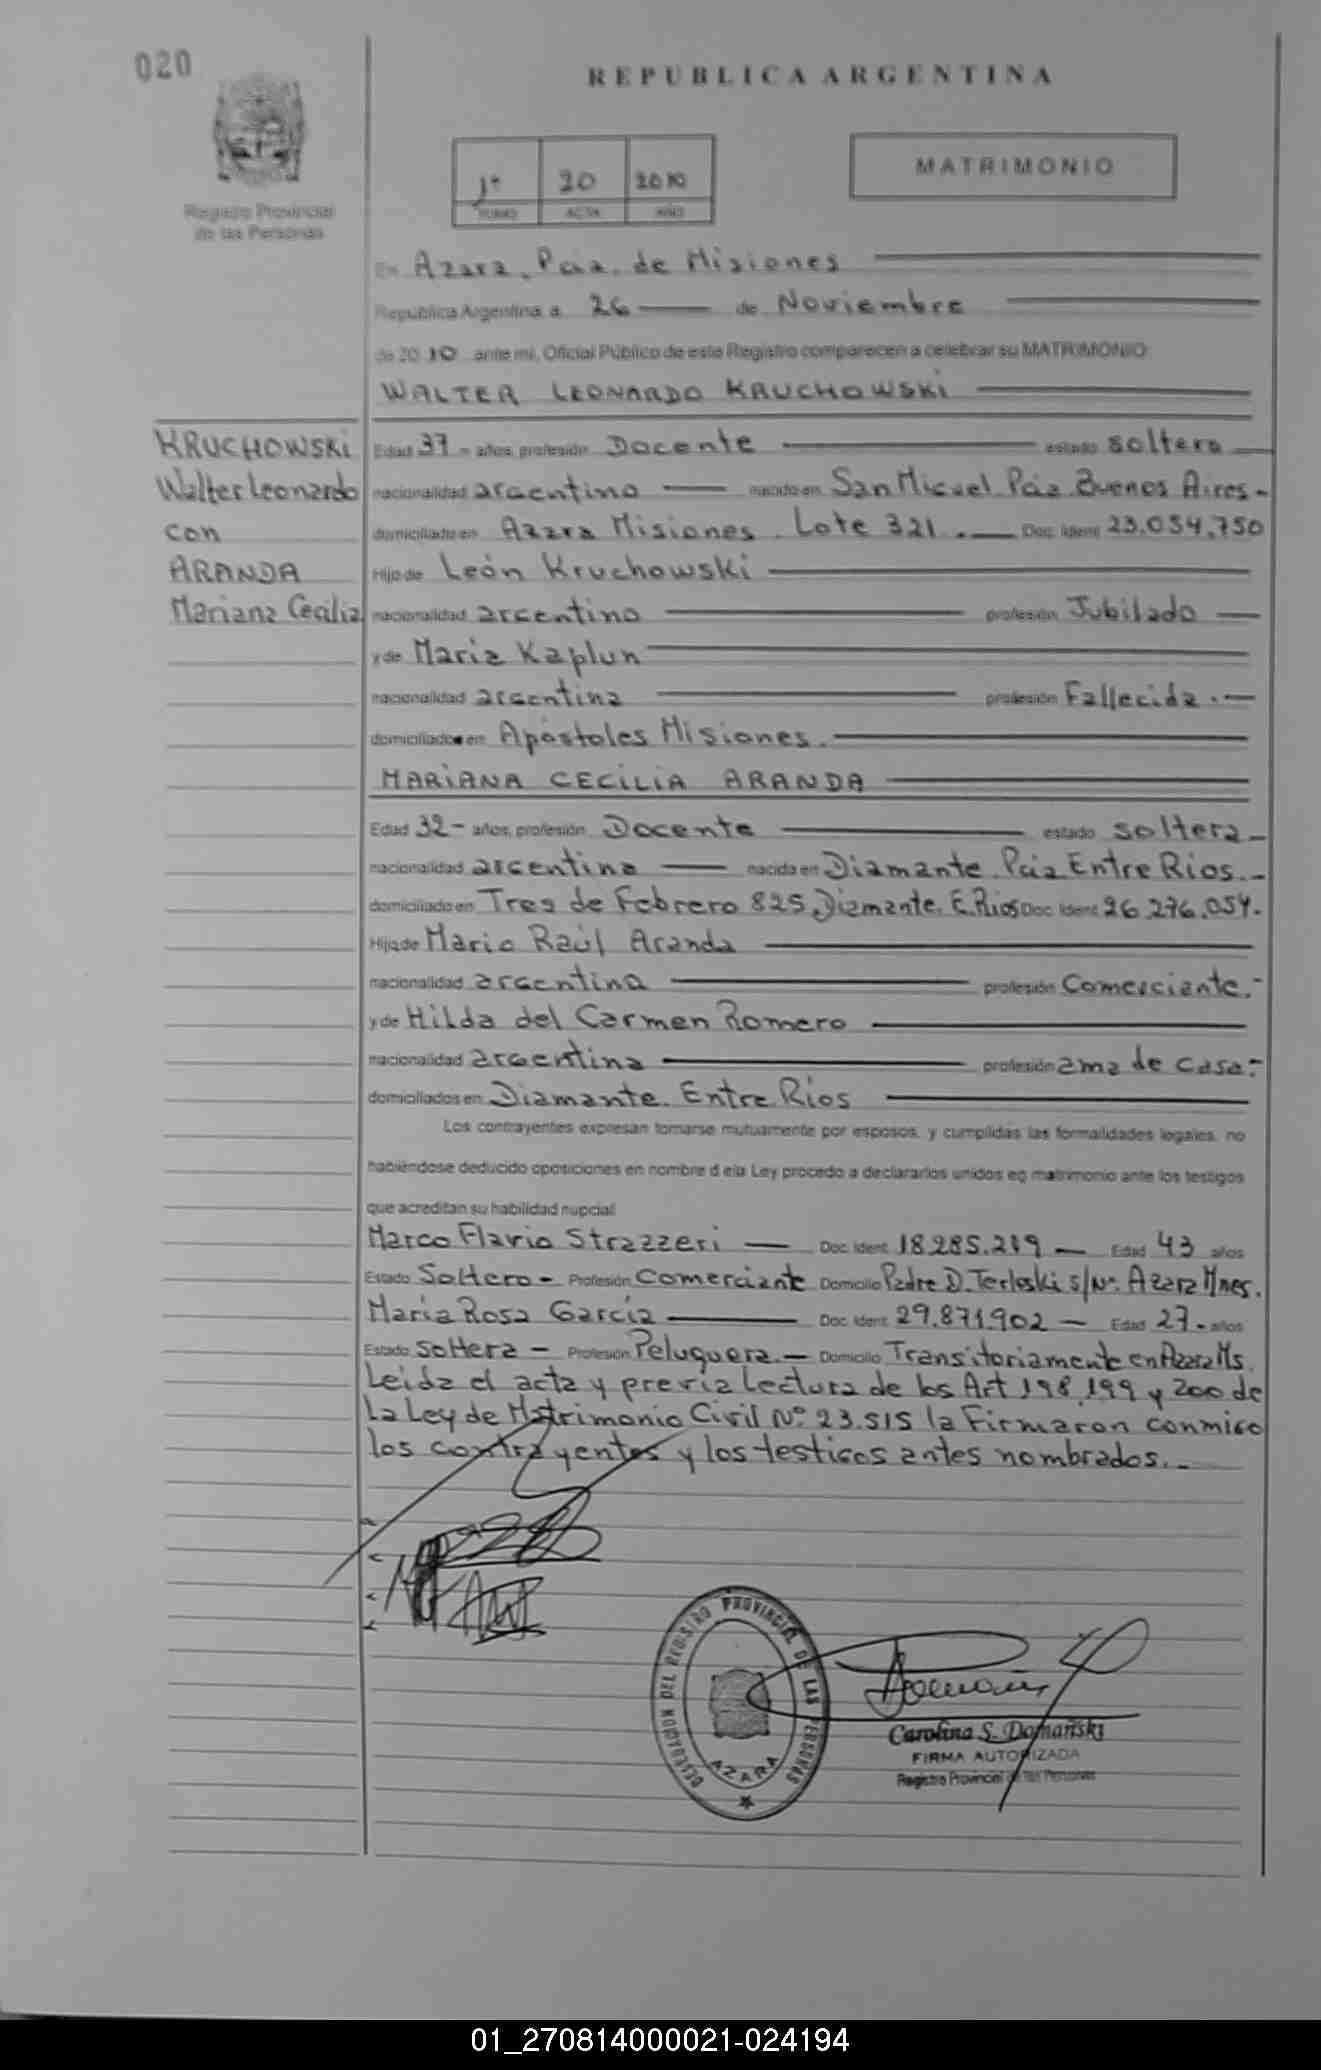 020
REPUBLICA ARGENTINA
Registro Provincial
de las Personas
1º 20 2010
TOMO ACTA AÑO
MATRIMONIO
En Azara, Pcia. de Misiones
República Argentina a 26 de Noviembre
de 2010 ante mi, Oficial Público de este Registro comparecen a celebrar su MATRIMONIO:
WALTER LEONARDO KRUCHOWSKI
KRUCHOWSKI
Walter Leonardo
con
ARANDA
Mariana Cecilia
Edad 37 - años, profesión Docente estado soltero
nacionalidad argentino nacido en San Miguel Pcia Buenos Aires -
domiciliado en Azara Misiones. Lote 321. Doc. Ident 23.054.750
Hijo de León Kruchowski
nacionalidad argentino profesión Jubilado
y de Maria Kaplun
nacionalidad argentina profesión Fallecida.
domiciliados en Apóstoles Misiones.
MARIANA CECILIA ARANDA
Edad 32 - años, profesión Docente estado soltera
nacionalidad argentina nacida en Diamante. Pcia Entre Rios.
domiciliado en Tres de Febrero 825, Diamante. E. Rios Doc. Ident 26.276.054.
Hija de Mario Raúl Aranda
nacionalidad argentina profesión Comerciante.
y de Hilda del Carmen Romero
nacionalidad argentina profesión ama de casa.
domiciliados en Diamante. Entre Rios
Los contrayentes expresan tomarse mutuamente por esposos, y cumplidas las formalidades legales, no
habiéndose deducido oposiciones en nombre d ela Ley procedo a declararlos unidos en matrimonio ante los testigos
que acreditan su habilidad nupcial
Marco Flavio Strazzeri Doc. Ident 18.285.219 Edad 43 años
Estado Soltero - Profesión Comerciante Domicilio Padre D. Terleski s/Nº. Azara Mnes.
Maria Rosa García Doc. Ident 29.871.902 Edad 27 - años
Estado Soltera - Profesión Peluquera. Domicilio Transitoriamente en Azara Ms.
Leida el acta y previa lectura de los Art 198, 199 y 200 de
la Ley de Matrimonio Civil Nº 23.515 la Firmaron conmigo
los contrayentes y los testigos antes nombrados.
DELEGACION DEL REGISTRO PROVINCIAL DE LAS PERSONAS
AZARA
Carolina S. Domañski
FIRMA AUTORIZADA
Registro Provincial de las Personas
01_270814000021-024194